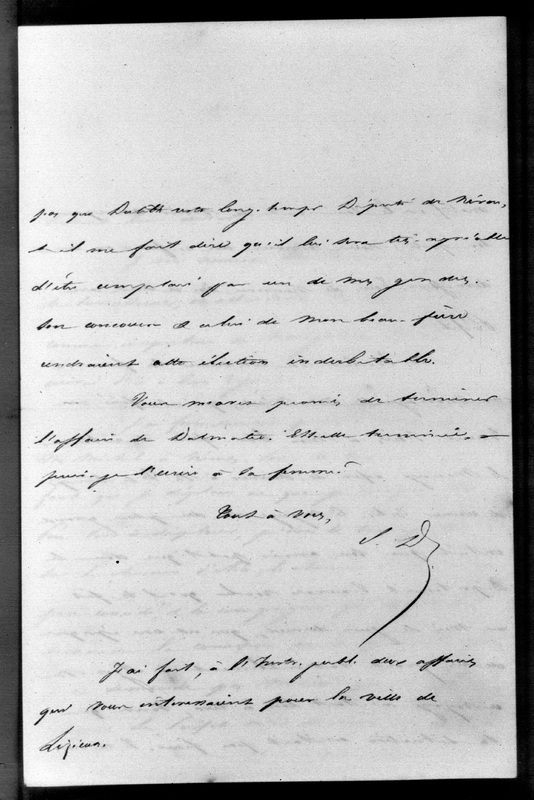 pas que Dubth reste long-temps Député de Nérac,
& il me fait dire qu'il lui sera très agréable
d'être remplacé par un de mes gendres.
Son concours & celui de mon beau-frère
rendraient cette élection indubitable.
Vous m'avez promis de terminer
l'affaire de Dalmatie. Est-elle terminée, &
puis-je l'écrire à sa femme?
Tout à vous,
S. D.
J'ai fait, à l'Instr. publ. deux affaires
qui vous intéressaient pour la ville de
Lizieux.